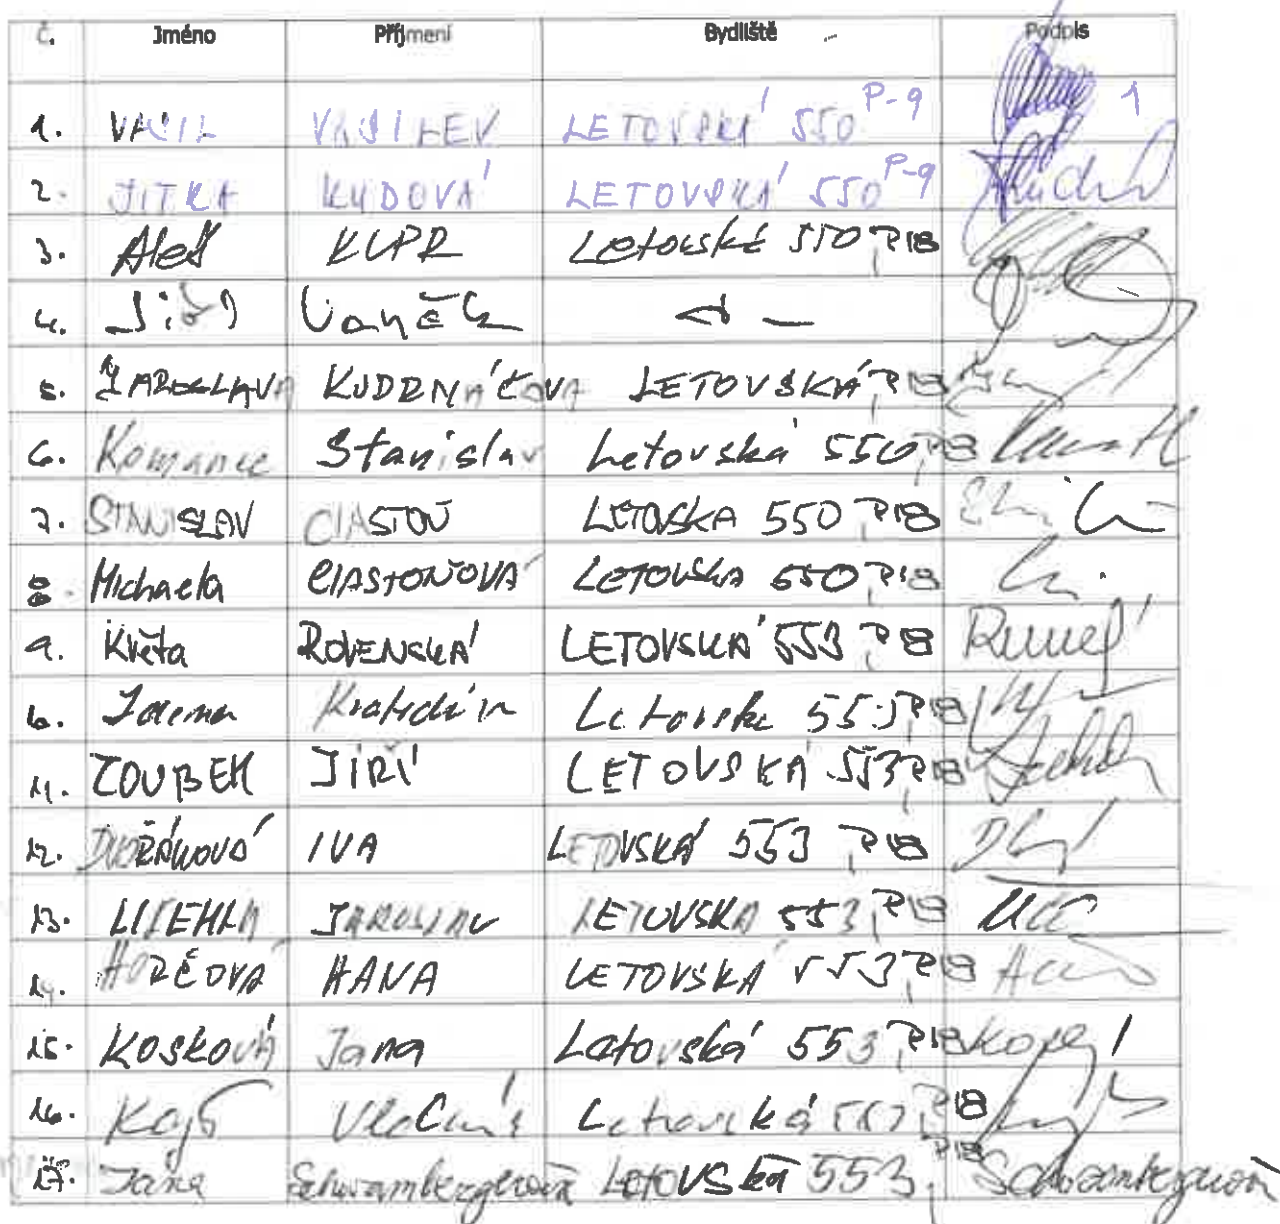 Č. Jméno Příjmení Bydliště Podpis
1. VASIL VASILEV LETOVSKÁ 550 P-9 1
2. JITKA KUDOVÁ LETOVSKÁ 550 P-9
3. Aleš KUPR Letovské 550, P18
4. Jiří Vaněk
5. JAROSLAVA KUDRNÁČOVA LETOVSKÁ, P18
6. Komanec Stanislav Letovská 550, P18
7. STANISLAV CIASTOŇ LETOVSKA 550 P18
8. Michaela CIASTOŇOVÁ LETOVSKA 550 P18
9. Květa ROVENSKÁ LETOVSKÁ 553, P18
10. 553, P18
11. ZOUBEK JIŘÍ LETOVSKÁ 553, P18
12. DVOŘÁKOVÁ IVA LETOVSKÁ 553, P18
13. JAROSLAV LETOVSKA 553, P18
14. HANA LETOVSKÁ 553, P18
15. KOSKOVÁ Jana Letovská 553, P18
16. Letovská 553, P18
17. Jana Schwambergerová LETOVSKÁ 553, P18 Schwambergerová